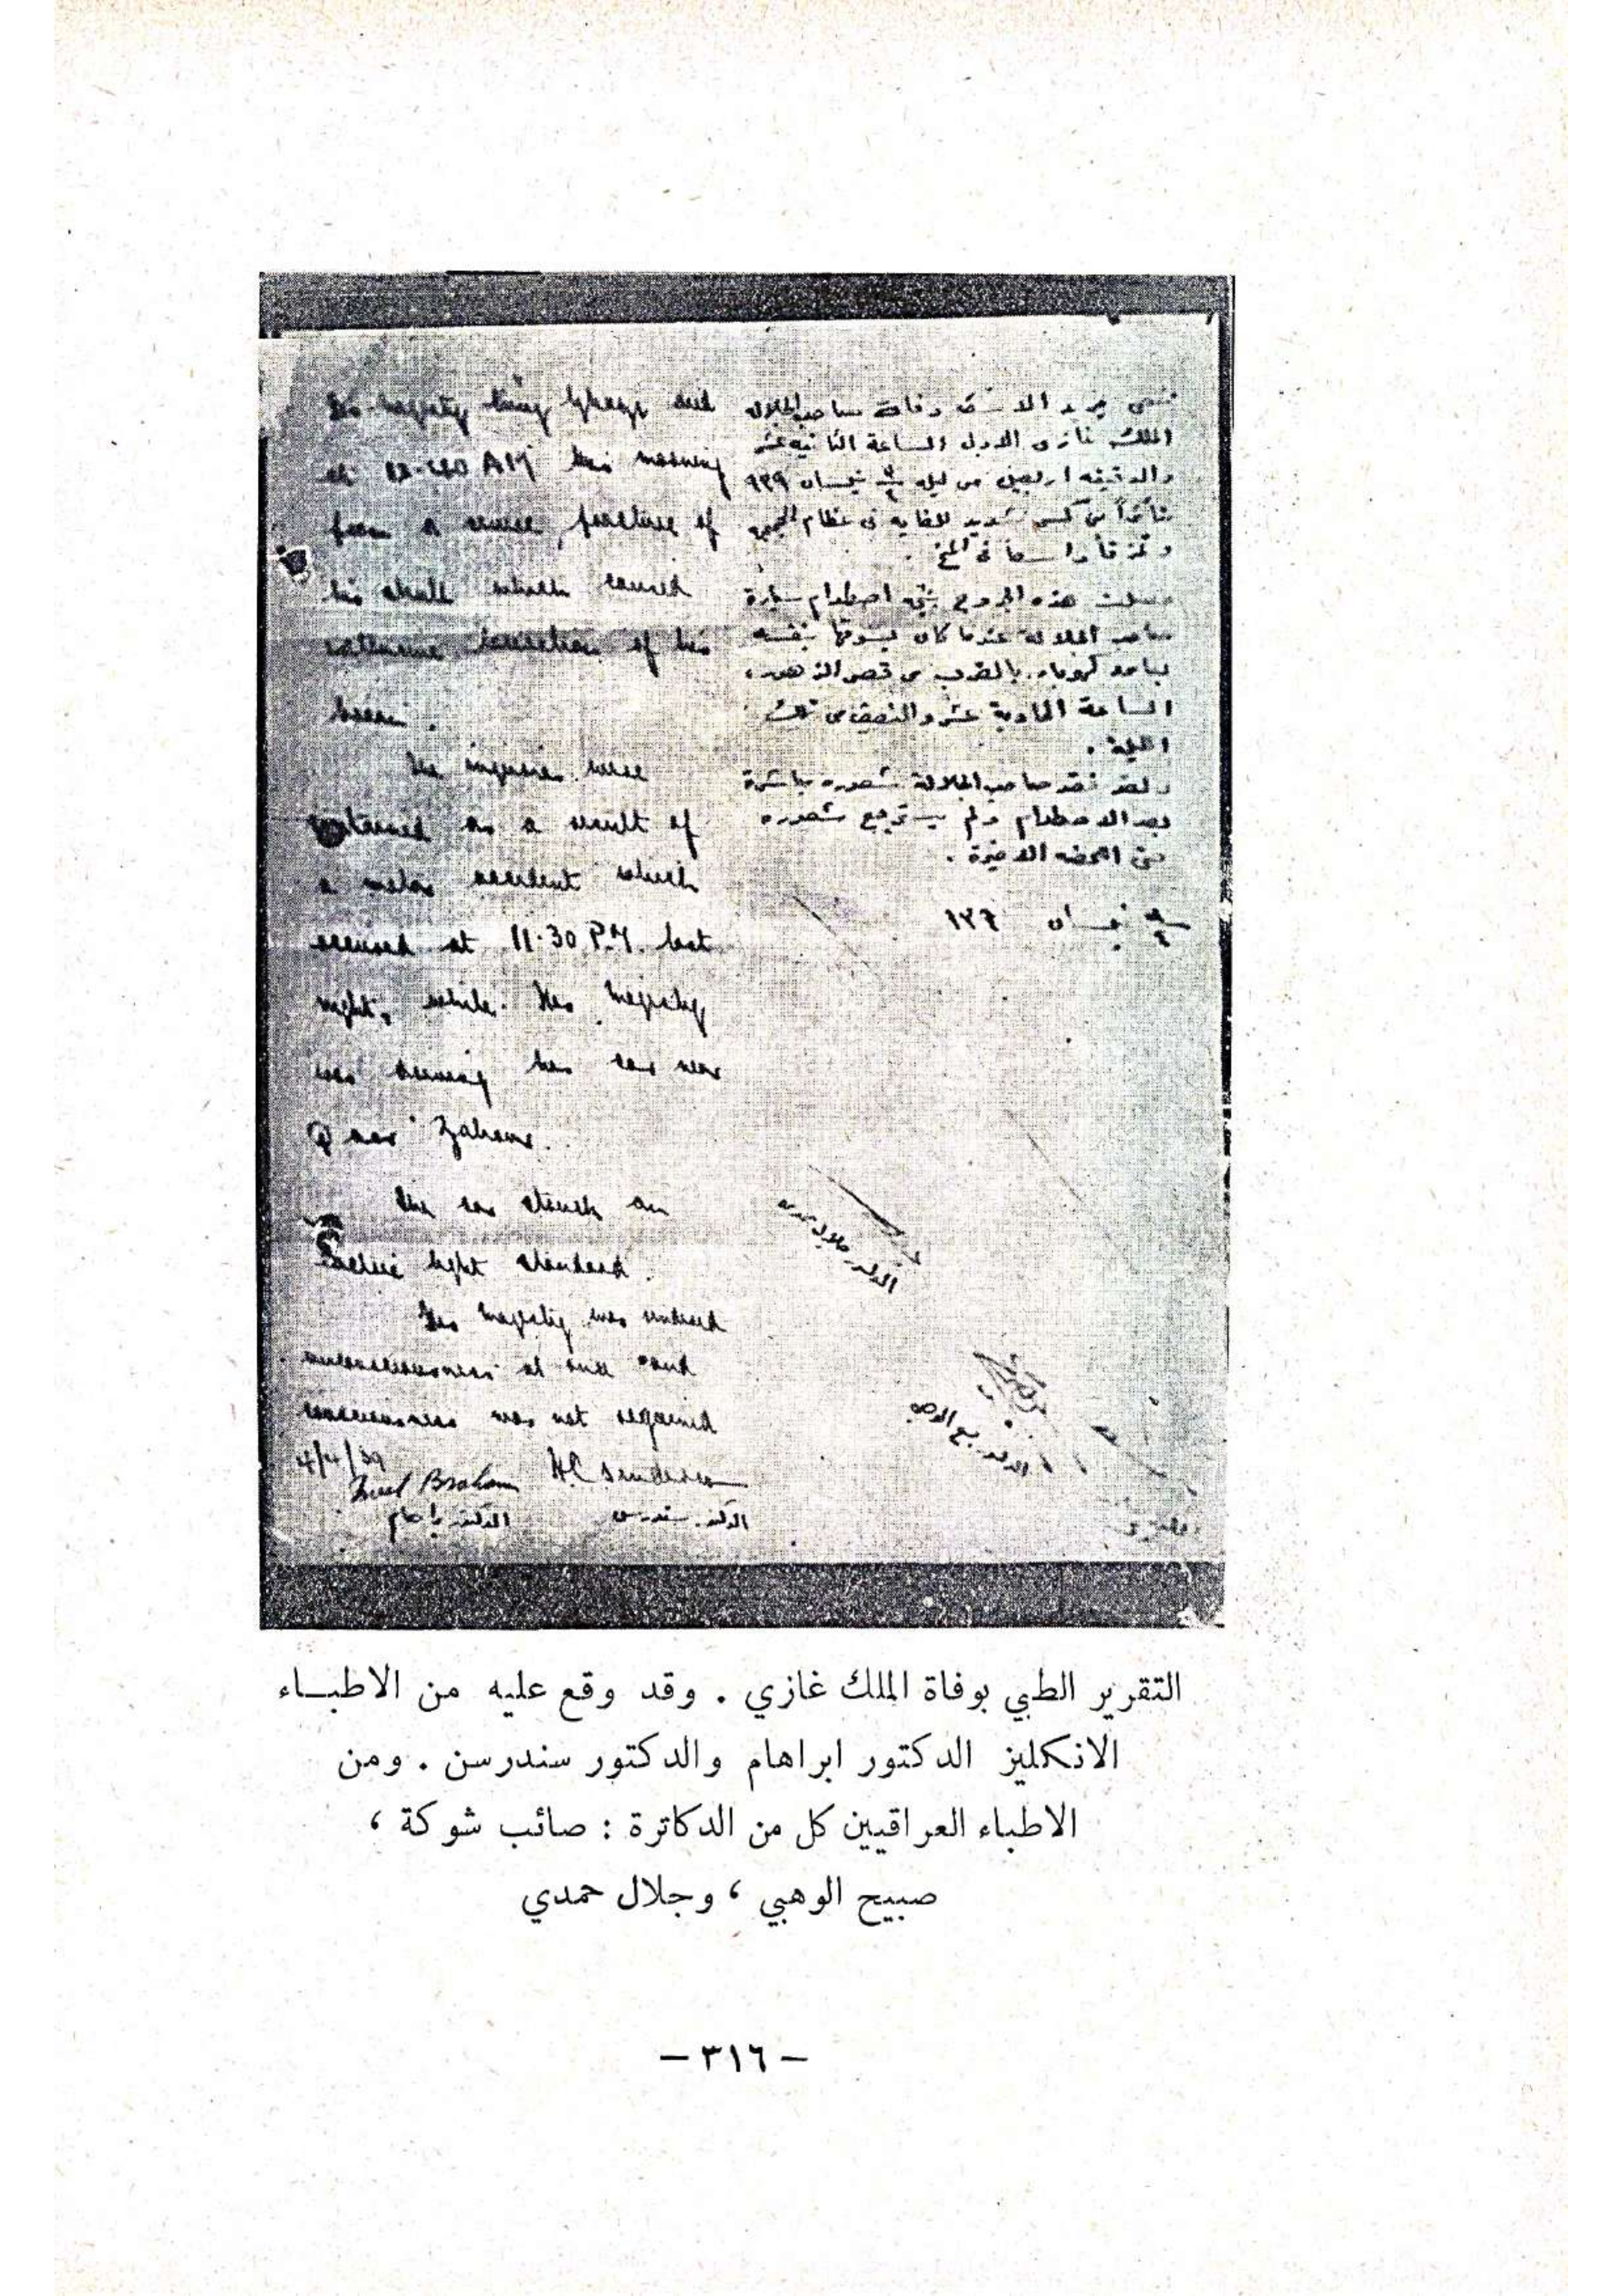 His Majesty King Ghazi died
at 12.40 AM this morning
from a severe fracture of
his skull which caused
extensive laceration of his
brain.
The injuries were
sustained as a result of
a motor accident which
occurred at 11.30 P.M. last
night, while His Majesty
was driving his car near
Qasr Zahour.
The car struck an
electric light standard.
His Majesty was rendered
unconsciousness at once and
consciousness was not regained
4/4/39
H.C. Sinderson
الدكتور سندرسن
الدكتور ابراهام
ننعى بمزيد الاسف وفاة صاحب الجلالة
الملك غازى الاول الساعة الثانيه عشر
والدقيقه اربعين من ليله ٣/٤ نيسان ٩٣٩
متأثراً من كسر شديد للغايه فى عظام الجمجمه
وتمزقاً واسعاً فى المخ .
حصلت هذه الجروح نتيجة اصطدام سيارة
صاحب الجلالة عندما كان يسوقها بنفسه
بعامود كهرباء بالقرب من قصر الزهور ،
الساعة الحادية عشر والنصف من تلك
الليلة .
ولقد فقد صاحب الجلالة شعوره مباشرة
بعد الاصطدام ولم يسترجع شعوره
حتى اللحظه الاخيرة .
نيسان
الدكتور جلال حمدى
الدكتور صبيح الوهبي
التقرير الطبي بوفاة الملك غازي . وقد وقع عليه من الاطبـاء
الانكليز الدكتور ابراهام والدكتور سندرسن . ومن
الاطباء العراقيين كل من الدكاترة : صائب شوكة ،
صبيح الوهبي ، وجلال حمدي
— ٣١٦ —